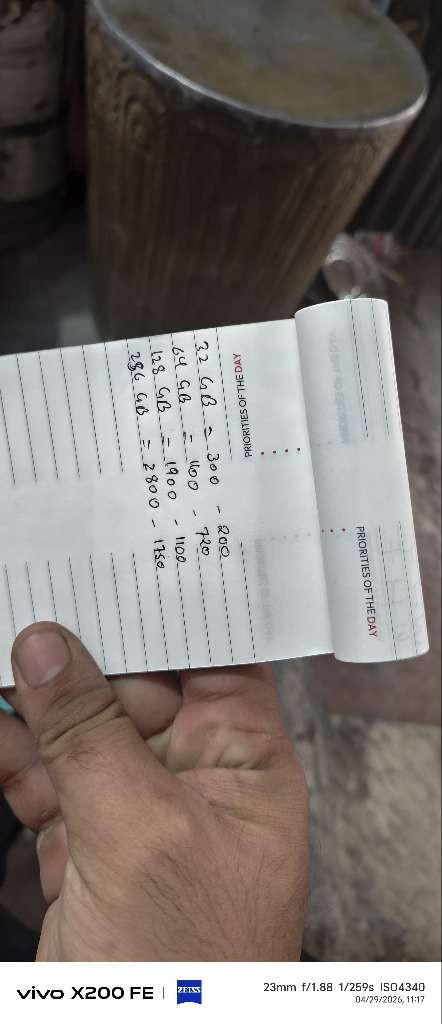 PRIORITIES OF THE DAY
PRIORITIES OF THE DAY
32 GB = 300 - 200
64 GB = 1100 - 720
128 GB = 1900 - 1100
286 GB = 2800 - 1750
vivo X200 FE | ZEISS
23mm f/1.88 1/259s ISO4340
04/29/2026, 11:17